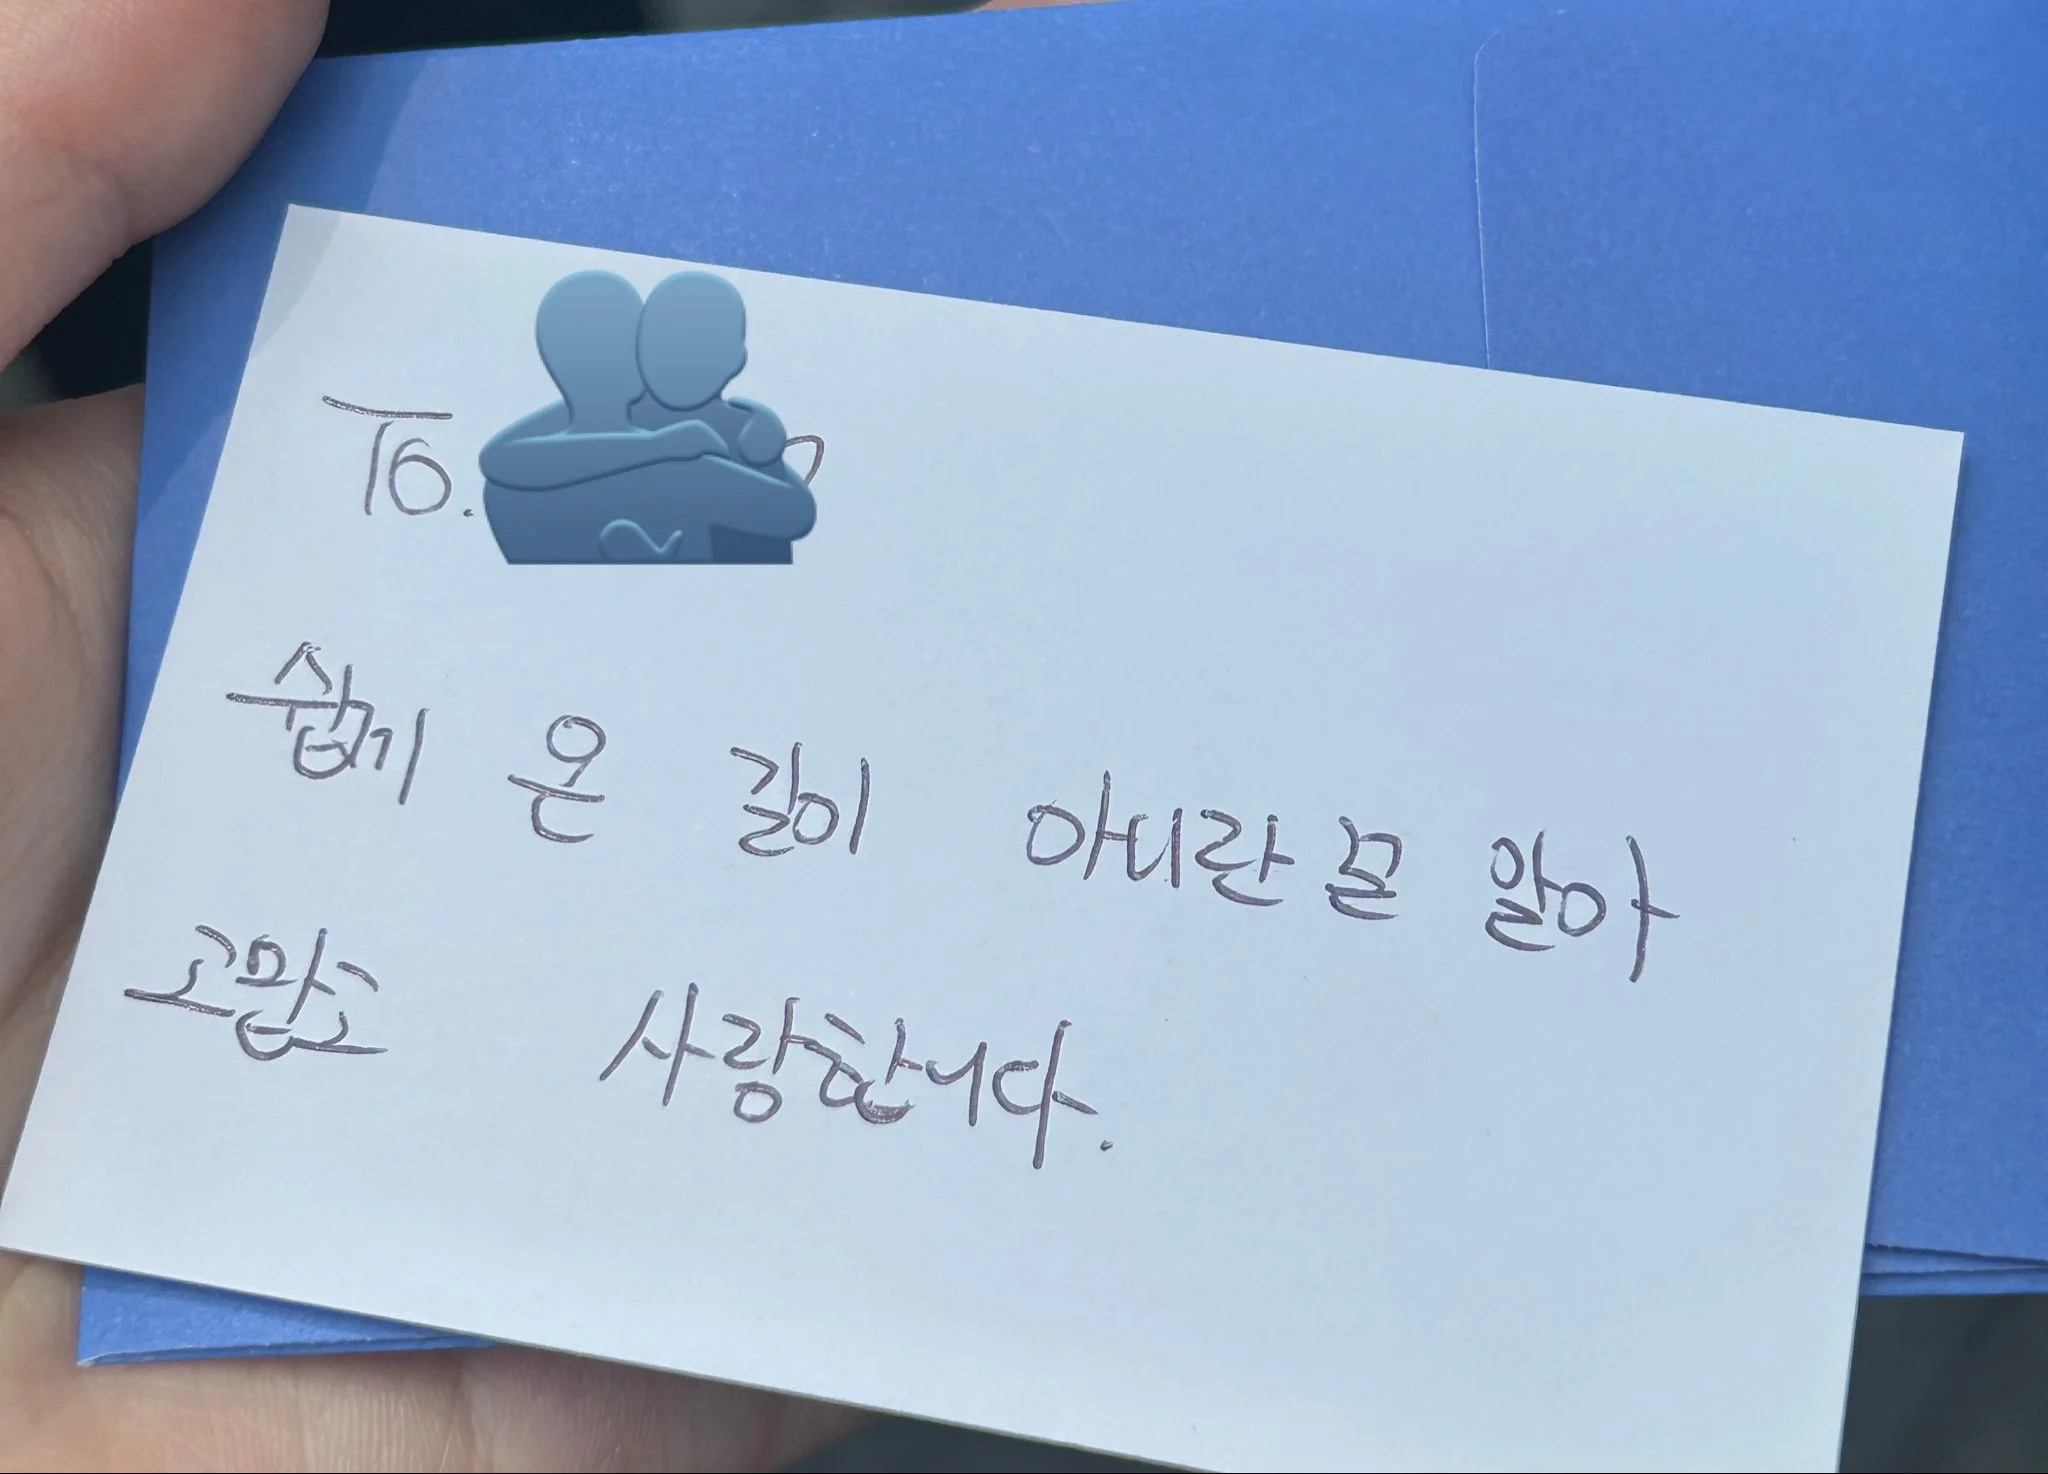 To.
쉽게 온 길이 아니란 걸 알아
고맙고 사랑합니다.